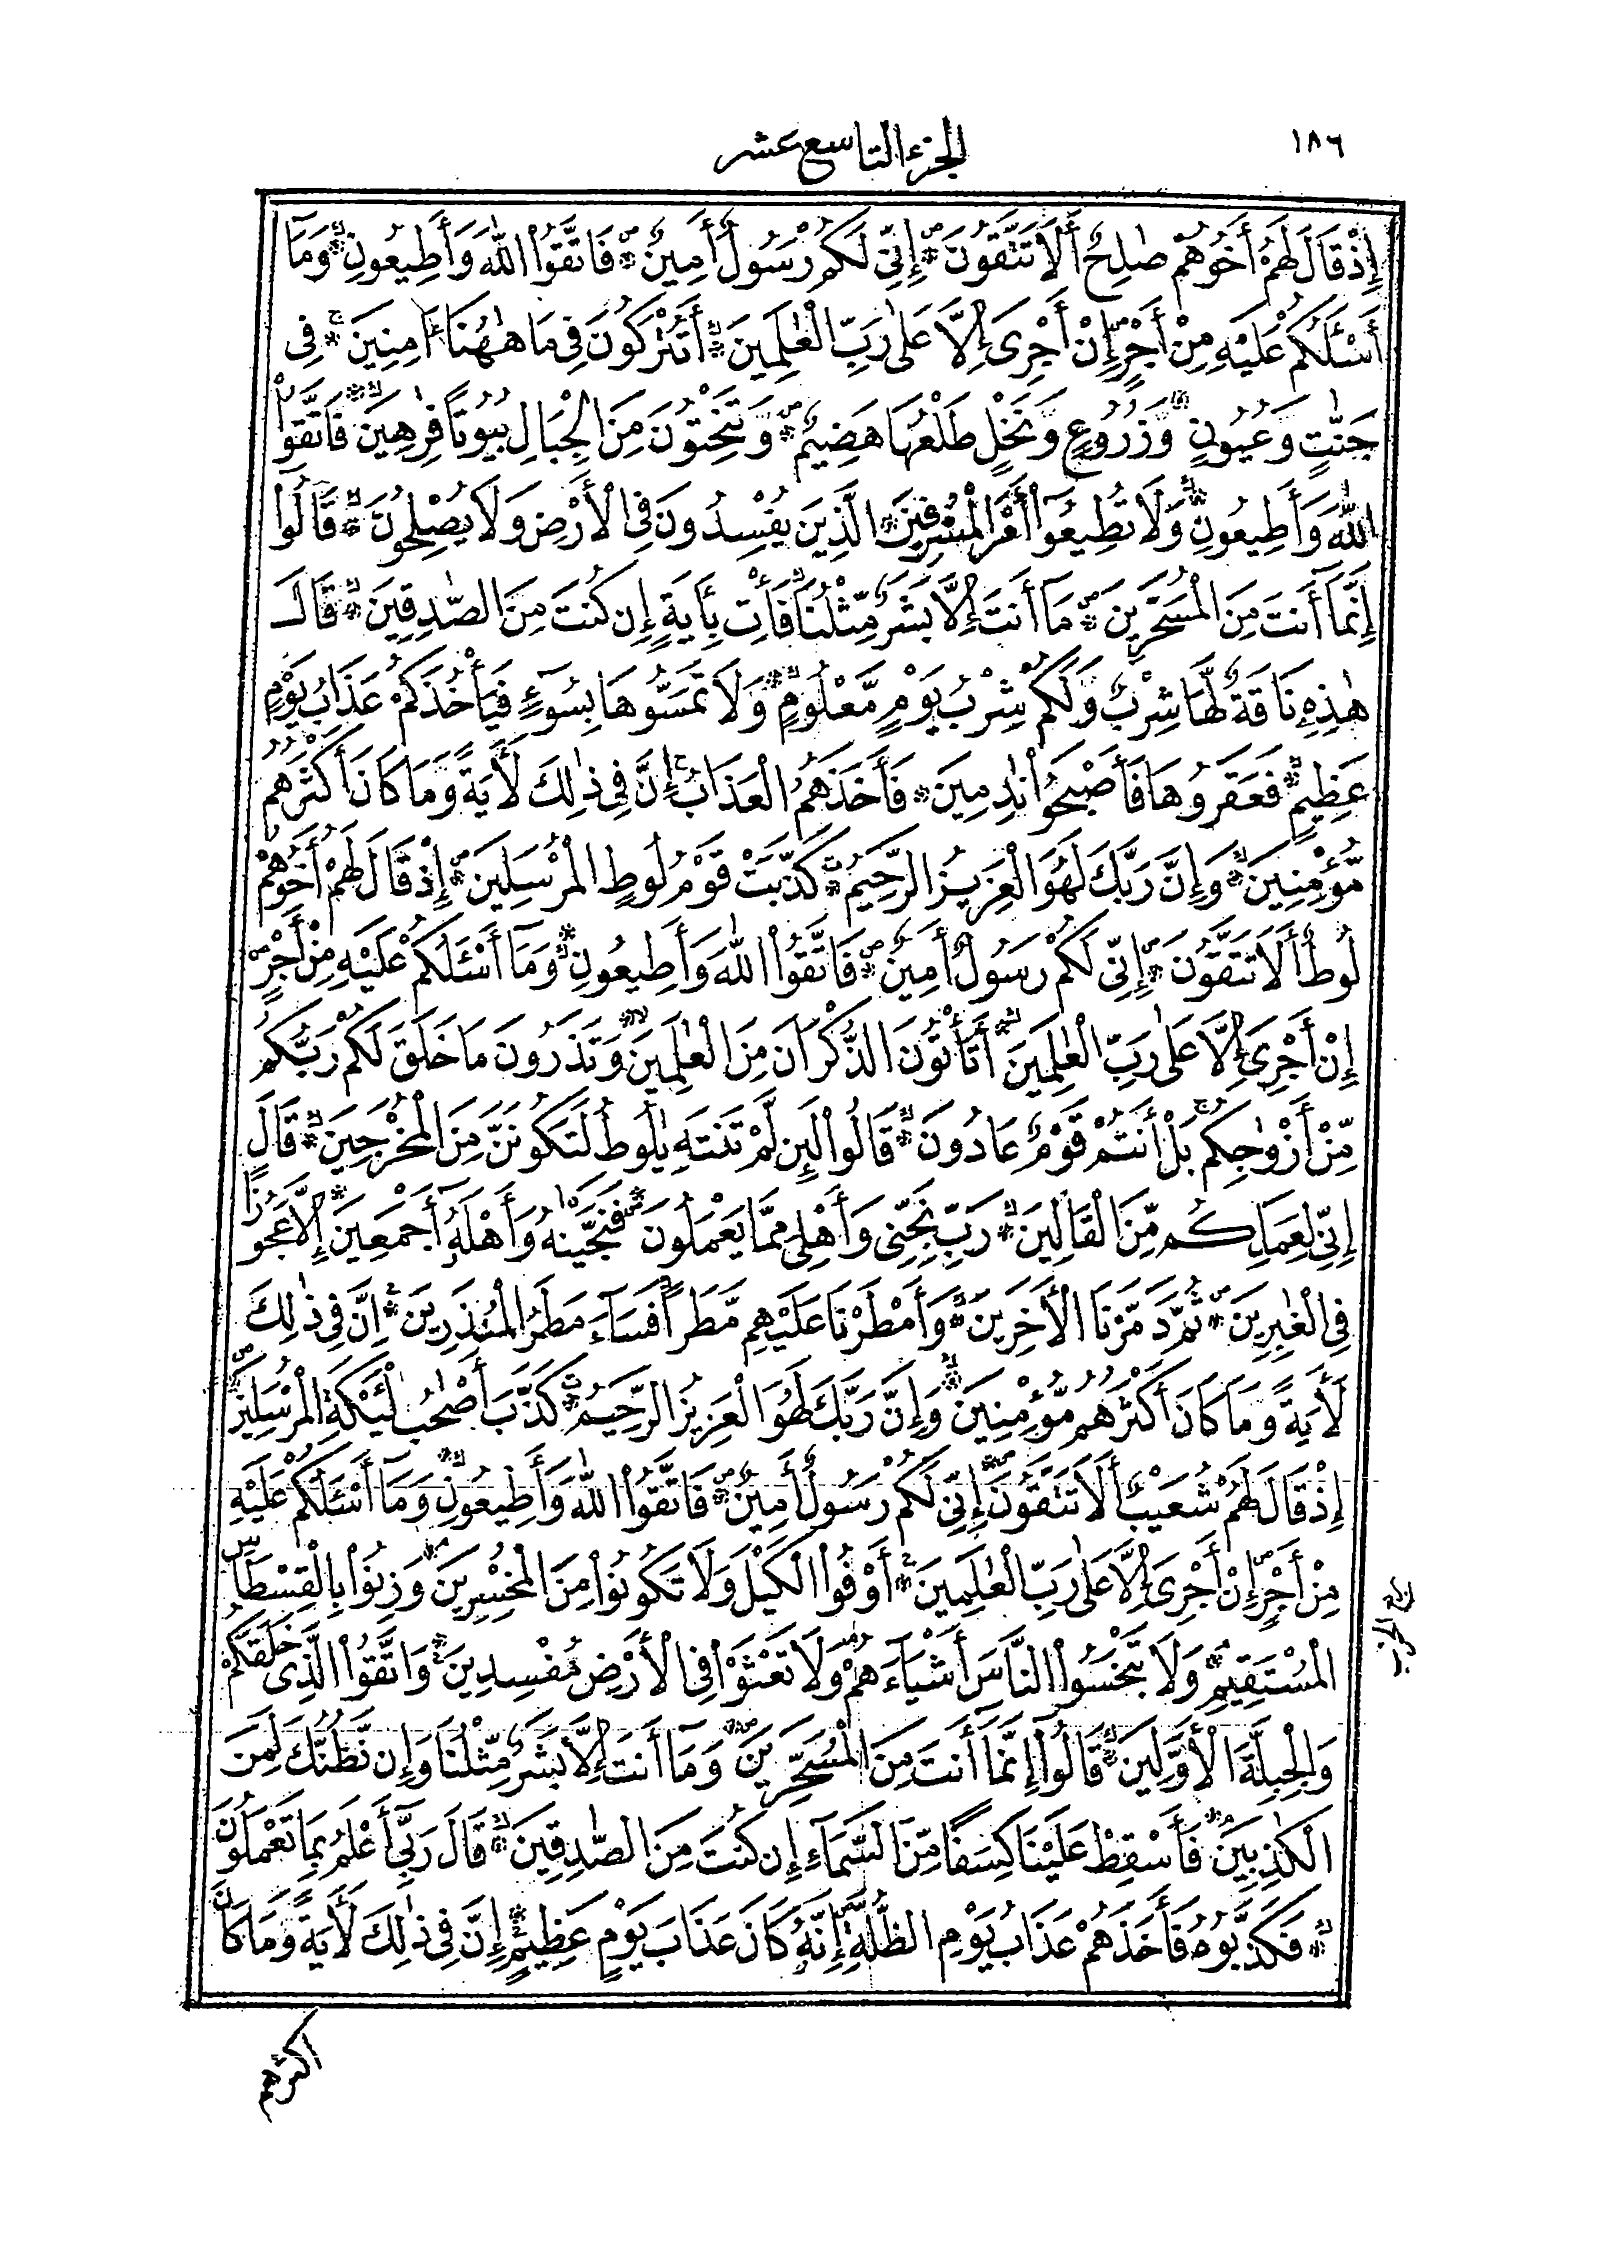 ١٨٦
الجزء التاسع عشر
إِذْ قَالَ لَهُمْ أَخُوهُمْ صَٰلِحٌ أَلَا تَتَّقُونَ ۞ إِنِّى لَكُمْ رَسُولٌ أَمِينٌ ۞ فَاتَّقُوا۟ اللَّهَ وَأَطِيعُونِ ۞ وَمَآ
أَسْـَٔلُكُمْ عَلَيْهِ مِنْ أَجْرٍ إِنْ أَجْرِىَ إِلَّا عَلَىٰ رَبِّ الْعَٰلَمِينَ ۞ أَتُتْرَكُونَ فِى مَا هَٰهُنَآ ءَامِنِينَ ۞ فِى
جَنَّٰتٍ وَعُيُونٍ ۞ وَزُرُوعٍ وَنَخْلٍ طَلْعُهَا هَضِيمٌ ۞ وَتَنْحِتُونَ مِنَ الْجِبَالِ بُيُوتًا فَٰرِهِينَ ۞ فَاتَّقُوا۟
اللَّهَ وَأَطِيعُونِ ۞ وَلَا تُطِيعُوٓا۟ أَمْرَ الْمُسْرِفِينَ ۞ الَّذِينَ يُفْسِدُونَ فِى الْأَرْضِ وَلَا يُصْلِحُونَ ۞ قَالُوٓا۟
إِنَّمَآ أَنتَ مِنَ الْمُسَحَّرِينَ ۞ مَآ أَنتَ إِلَّا بَشَرٌ مِّثْلُنَا فَأْتِ بِـَٔايَةٍ إِن كُنتَ مِنَ الصَّٰدِقِينَ ۞ قَالَ
هَٰذِهِ نَاقَةٌ لَّهَا شِرْبٌ وَلَكُمْ شِرْبُ يَوْمٍ مَّعْلُومٍ ۞ وَلَا تَمَسُّوهَا بِسُوٓءٍ فَيَأْخُذَكُمْ عَذَابُ يَوْمٍ
عَظِيمٍ ۞ فَعَقَرُوهَا فَأَصْبَحُوا۟ نَٰدِمِينَ ۞ فَأَخَذَهُمُ الْعَذَابُ إِنَّ فِى ذَٰلِكَ لَأَيَةً وَمَا كَانَ أَكْثَرُهُم
مُّؤْمِنِينَ ۞ وَإِنَّ رَبَّكَ لَهُوَ الْعَزِيزُ الرَّحِيمُ ۞ كَذَّبَتْ قَوْمُ لُوطٍ الْمُرْسَلِينَ ۞ إِذْ قَالَ لَهُمْ أَخُوهُمْ
لُوطٌ أَلَا تَتَّقُونَ ۞ إِنِّى لَكُمْ رَسُولٌ أَمِينٌ ۞ فَاتَّقُوا۟ اللَّهَ وَأَطِيعُونِ ۞ وَمَآ أَسْـَٔلُكُمْ عَلَيْهِ مِنْ أَجْرٍ
إِنْ أَجْرِىَ إِلَّا عَلَىٰ رَبِّ الْعَٰلَمِينَ ۞ أَتَأْتُونَ الذُّكْرَانَ مِنَ الْعَٰلَمِينَ ۞ وَتَذَرُونَ مَا خَلَقَ لَكُمْ رَبُّكُم
مِّنْ أَزْوَٰجِكُم بَلْ أَنتُمْ قَوْمٌ عَادُونَ ۞ قَالُوا۟ لَئِن لَّمْ تَنتَهِ يَٰلُوطُ لَتَكُونَنَّ مِنَ الْمُخْرَجِينَ ۞ قَالَ
إِنِّى لِعَمَلِكُم مِّنَ الْقَالِينَ ۞ رَبِّ نَجِّنِى وَأَهْلِى مِمَّا يَعْمَلُونَ ۞ فَنَجَّيْنَٰهُ وَأَهْلَهُٓ أَجْمَعِينَ ۞ إِلَّا عَجُوزًا
فِى الْغَٰبِرِينَ ۞ ثُمَّ دَمَّرْنَا الْأَخَرِينَ ۞ وَأَمْطَرْنَا عَلَيْهِم مَّطَرًا فَسَآءَ مَطَرُ الْمُنذَرِينَ ۞ إِنَّ فِى ذَٰلِكَ
لَأَيَةً وَمَا كَانَ أَكْثَرُهُم مُّؤْمِنِينَ ۞ وَإِنَّ رَبَّكَ لَهُوَ الْعَزِيزُ الرَّحِيمُ ۞ كَذَّبَ أَصْحَٰبُ لْـَٔيْكَةِ الْمُرْسَلِينَ
إِذْ قَالَ لَهُمْ شُعَيْبٌ أَلَا تَتَّقُونَ ۞ إِنِّى لَكُمْ رَسُولٌ أَمِينٌ ۞ فَاتَّقُوا۟ اللَّهَ وَأَطِيعُونِ ۞ وَمَآ أَسْـَٔلُكُمْ عَلَيْهِ
مِنْ أَجْرٍ إِنْ أَجْرِىَ إِلَّا عَلَىٰ رَبِّ الْعَٰلَمِينَ ۞ أَوْفُوا۟ الْكَيْلَ وَلَا تَكُونُوا۟ مِنَ الْمُخْسِرِينَ ۞ وَزِنُوا۟ بِالْقِسْطَاسِ
الْمُسْتَقِيمِ ۞ وَلَا تَبْخَسُوا۟ النَّاسَ أَشْيَآءَهُمْ وَلَا تَعْثَوْا۟ فِى الْأَرْضِ مُفْسِدِينَ ۞ وَاتَّقُوا۟ الَّذِى خَلَقَكُمْ
وَالْجِبِلَّةَ الْأَوَّلِينَ ۞ قَالُوٓا۟ إِنَّمَآ أَنتَ مِنَ الْمُسَحَّرِينَ ۞ وَمَآ أَنتَ إِلَّا بَشَرٌ مِّثْلُنَا وَإِن نَّظُنُّكَ لَمِنَ
الْكَٰذِبِينَ ۞ فَأَسْقِطْ عَلَيْنَا كِسَفًا مِّنَ السَّمَآءِ إِن كُنتَ مِنَ الصَّٰدِقِينَ ۞ قَالَ رَبِّىٓ أَعْلَمُ بِمَا تَعْمَلُونَ
۞ فَكَذَّبُوهُ فَأَخَذَهُمْ عَذَابُ يَوْمِ الظُّلَّةِ إِنَّهُ كَانَ عَذَابَ يَوْمٍ عَظِيمٍ ۞ إِنَّ فِى ذَٰلِكَ لَأَيَةً وَمَا كَانَ
اكثرهم